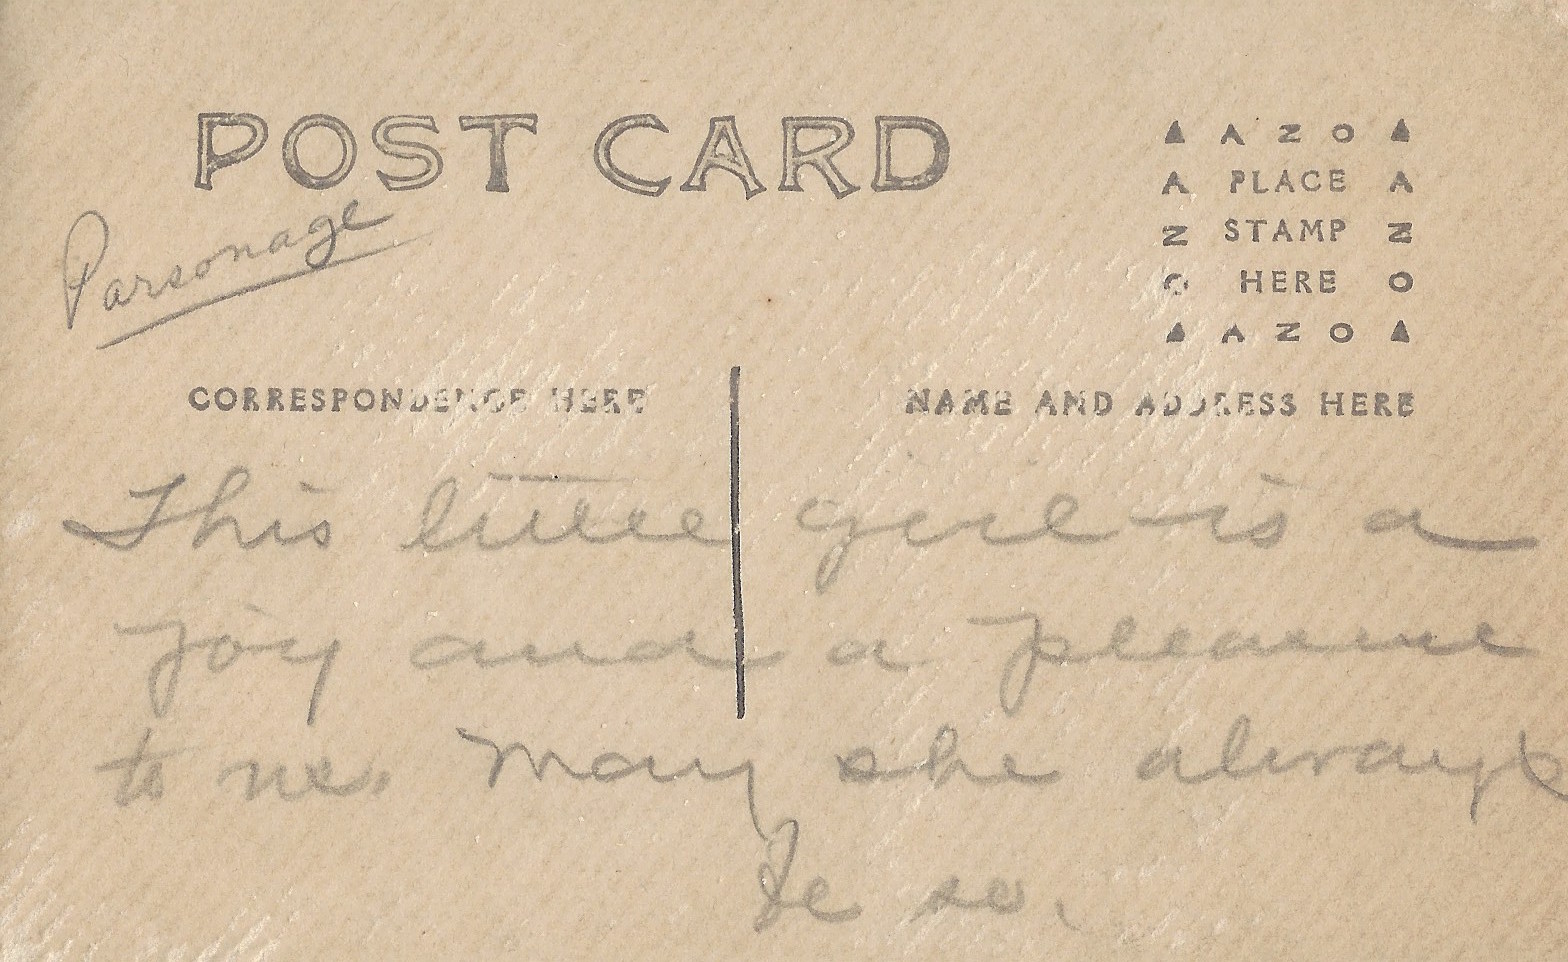 POST CARD
Parsonage
AZO
A PLACE A
Z STAMP Z
O HERE O
AZO
CORRESPONDENCE HERE
NAME AND ADDRESS HERE
This little girl is a
joy and a pleasure
to me. May she always
be so.